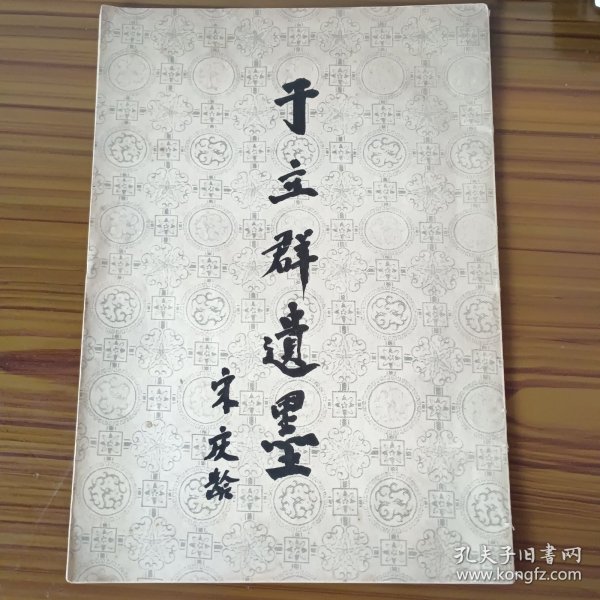 于立群遗墨
宋庆龄
孔夫子旧書网
www.kongfz.com